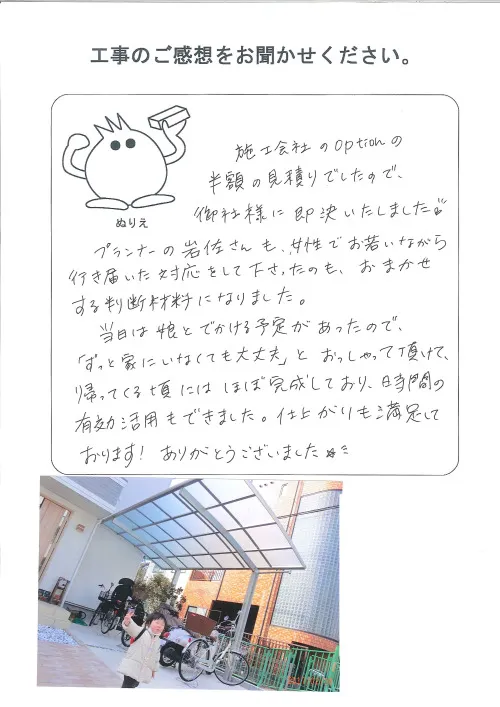 工事のご感想をお聞かせください。
ぬりえ
施工会社のoptionの
半額の見積りでしたので、
御社様に即決いたしました
プランナーの岩佐さんも、女性でお若いながら
行き届いた対応をして下さったのも、おまかせ
する判断材料になりました。
当日は娘とでかける予定があったので、
「ずっと家にいなくても大丈夫」とおっしゃって頂けて、
帰ってくる頃にはほぼ完成しており、時間の
有効活用もできました。仕上がりも満足して
おります!ありがとうございました